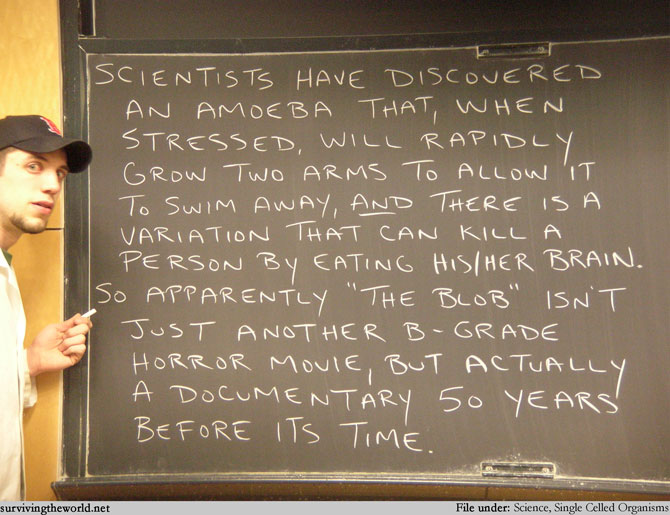 SCIENTISTS HAVE DISCOVERED
AN AMOEBA THAT, WHEN
STRESSED, WILL RAPIDLY
GROW TWO ARMS TO ALLOW IT
TO SWIM AWAY, AND THERE IS A
VARIATION THAT CAN KILL A
PERSON BY EATING HIS/HER BRAIN.
SO APPARENTLY "THE BLOB" ISN'T
JUST ANOTHER B-GRADE
HORROR MOVIE, BUT ACTUALLY
A DOCUMENTARY 50 YEARS
BEFORE ITS TIME.
survivingtheworld.net
File under: Science, Single Celled Organisms